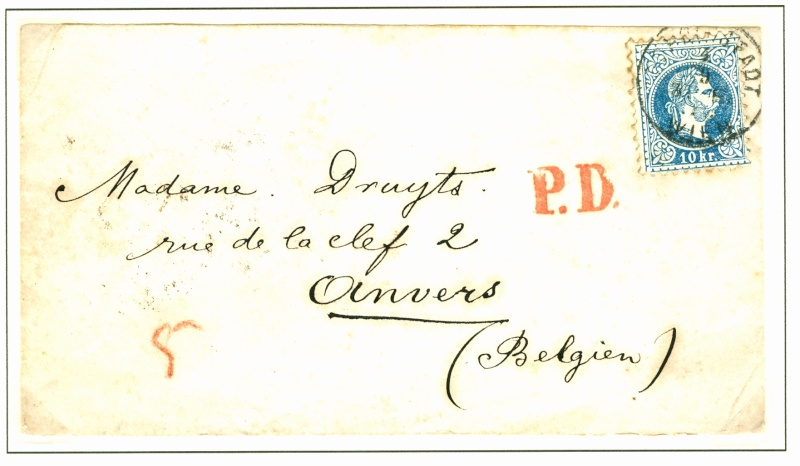 Madame. Druyts.
rue de la clef 2
Anvers
(Belgien)
P.D.
10 kr.
WIEN
5